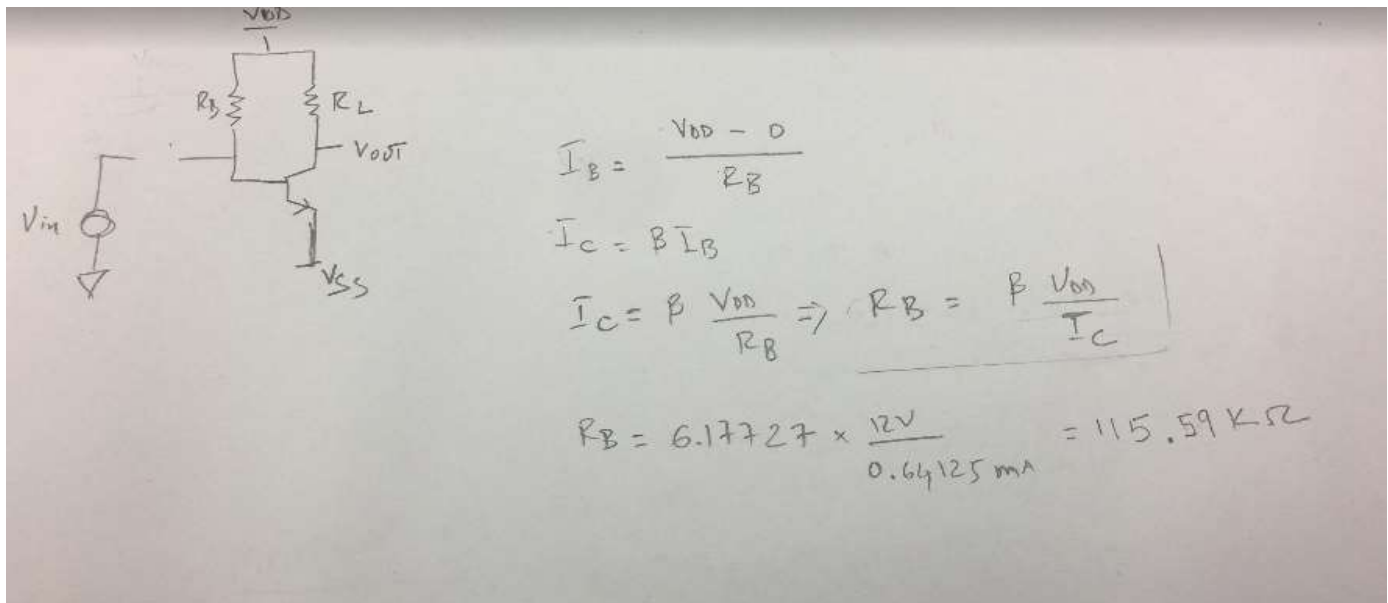 VDD
RB
RL
VOUT
Vin
VSS
IB = VDD - 0 / RB
IC = βIB
IC = β VDD / RB => RB = β VDD / IC
RB = 6.17727 × 12V / 0.64125 mA = 115.59 KΩ